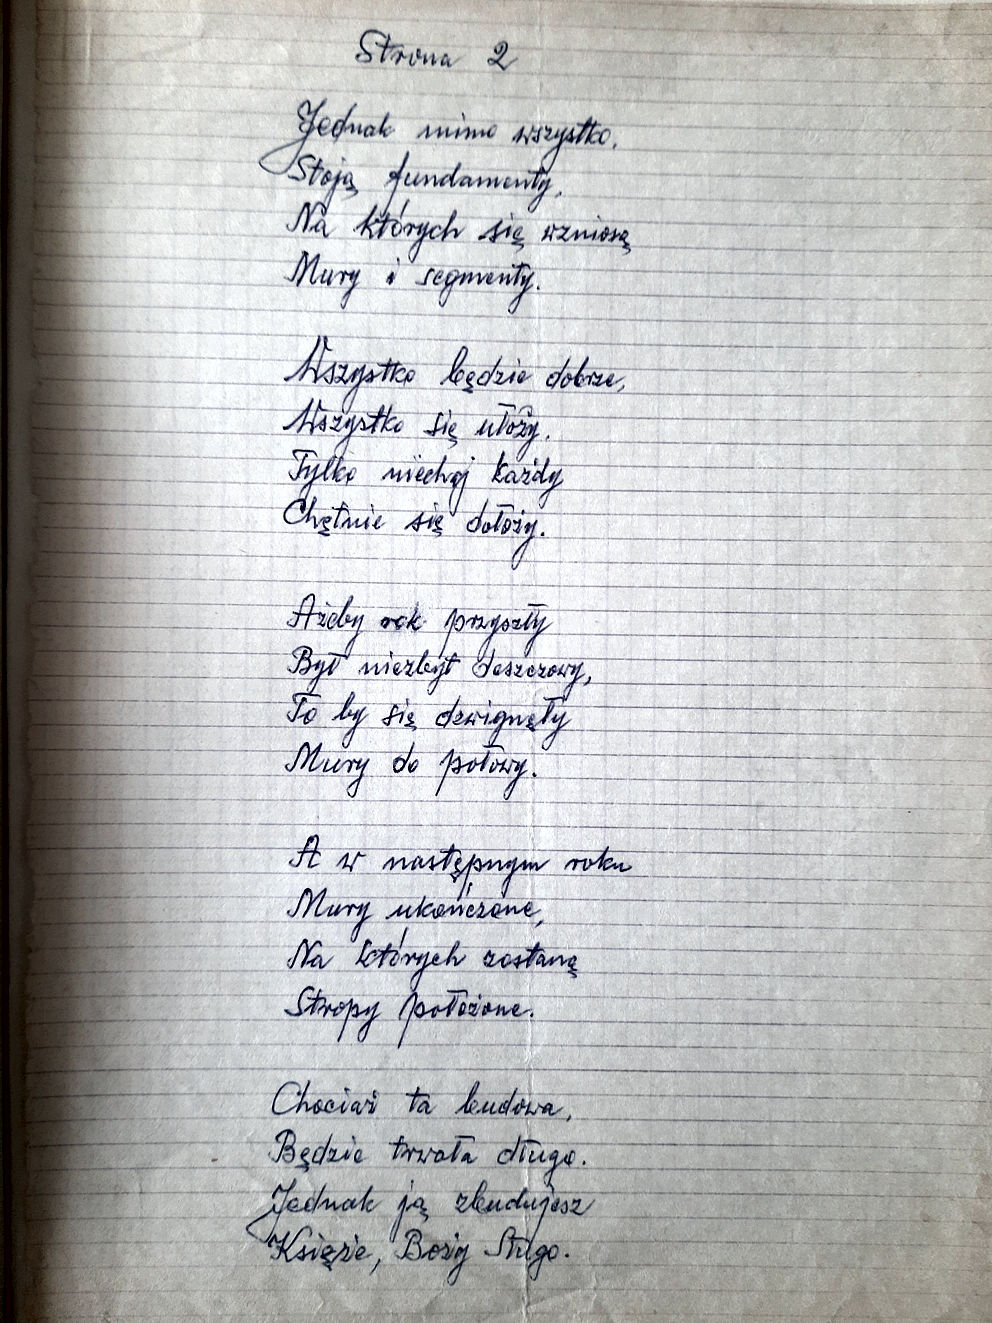 Strona 2
Jednak mimo wszystko,
Stoją fundamenty,
Na których się wzniosą
Mury i segmenty.
Wszystko będzie dobrze,
Wszystko się ułoży,
Tylko niechaj każdy
Chętnie się dołoży.
Ażeby rok przyszły
Był niezbyt deszczowy,
To by się dzwignęły
Mury do połowy.
A w następnym roku
Mury ukończone,
Na których zostaną
Stropy położone.
Chociaż ta budowa,
Będzie trwała długo.
Jednak ją zbudujesz
Księże, Boży Sługo.